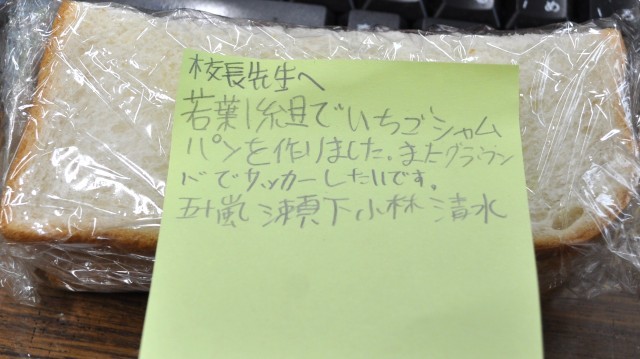 校長先生へ
若葉1組でいちごジャム
パンを作りました。またグラウン
ドでサッカーしたいです。
五十嵐 瀬下 小林 清水